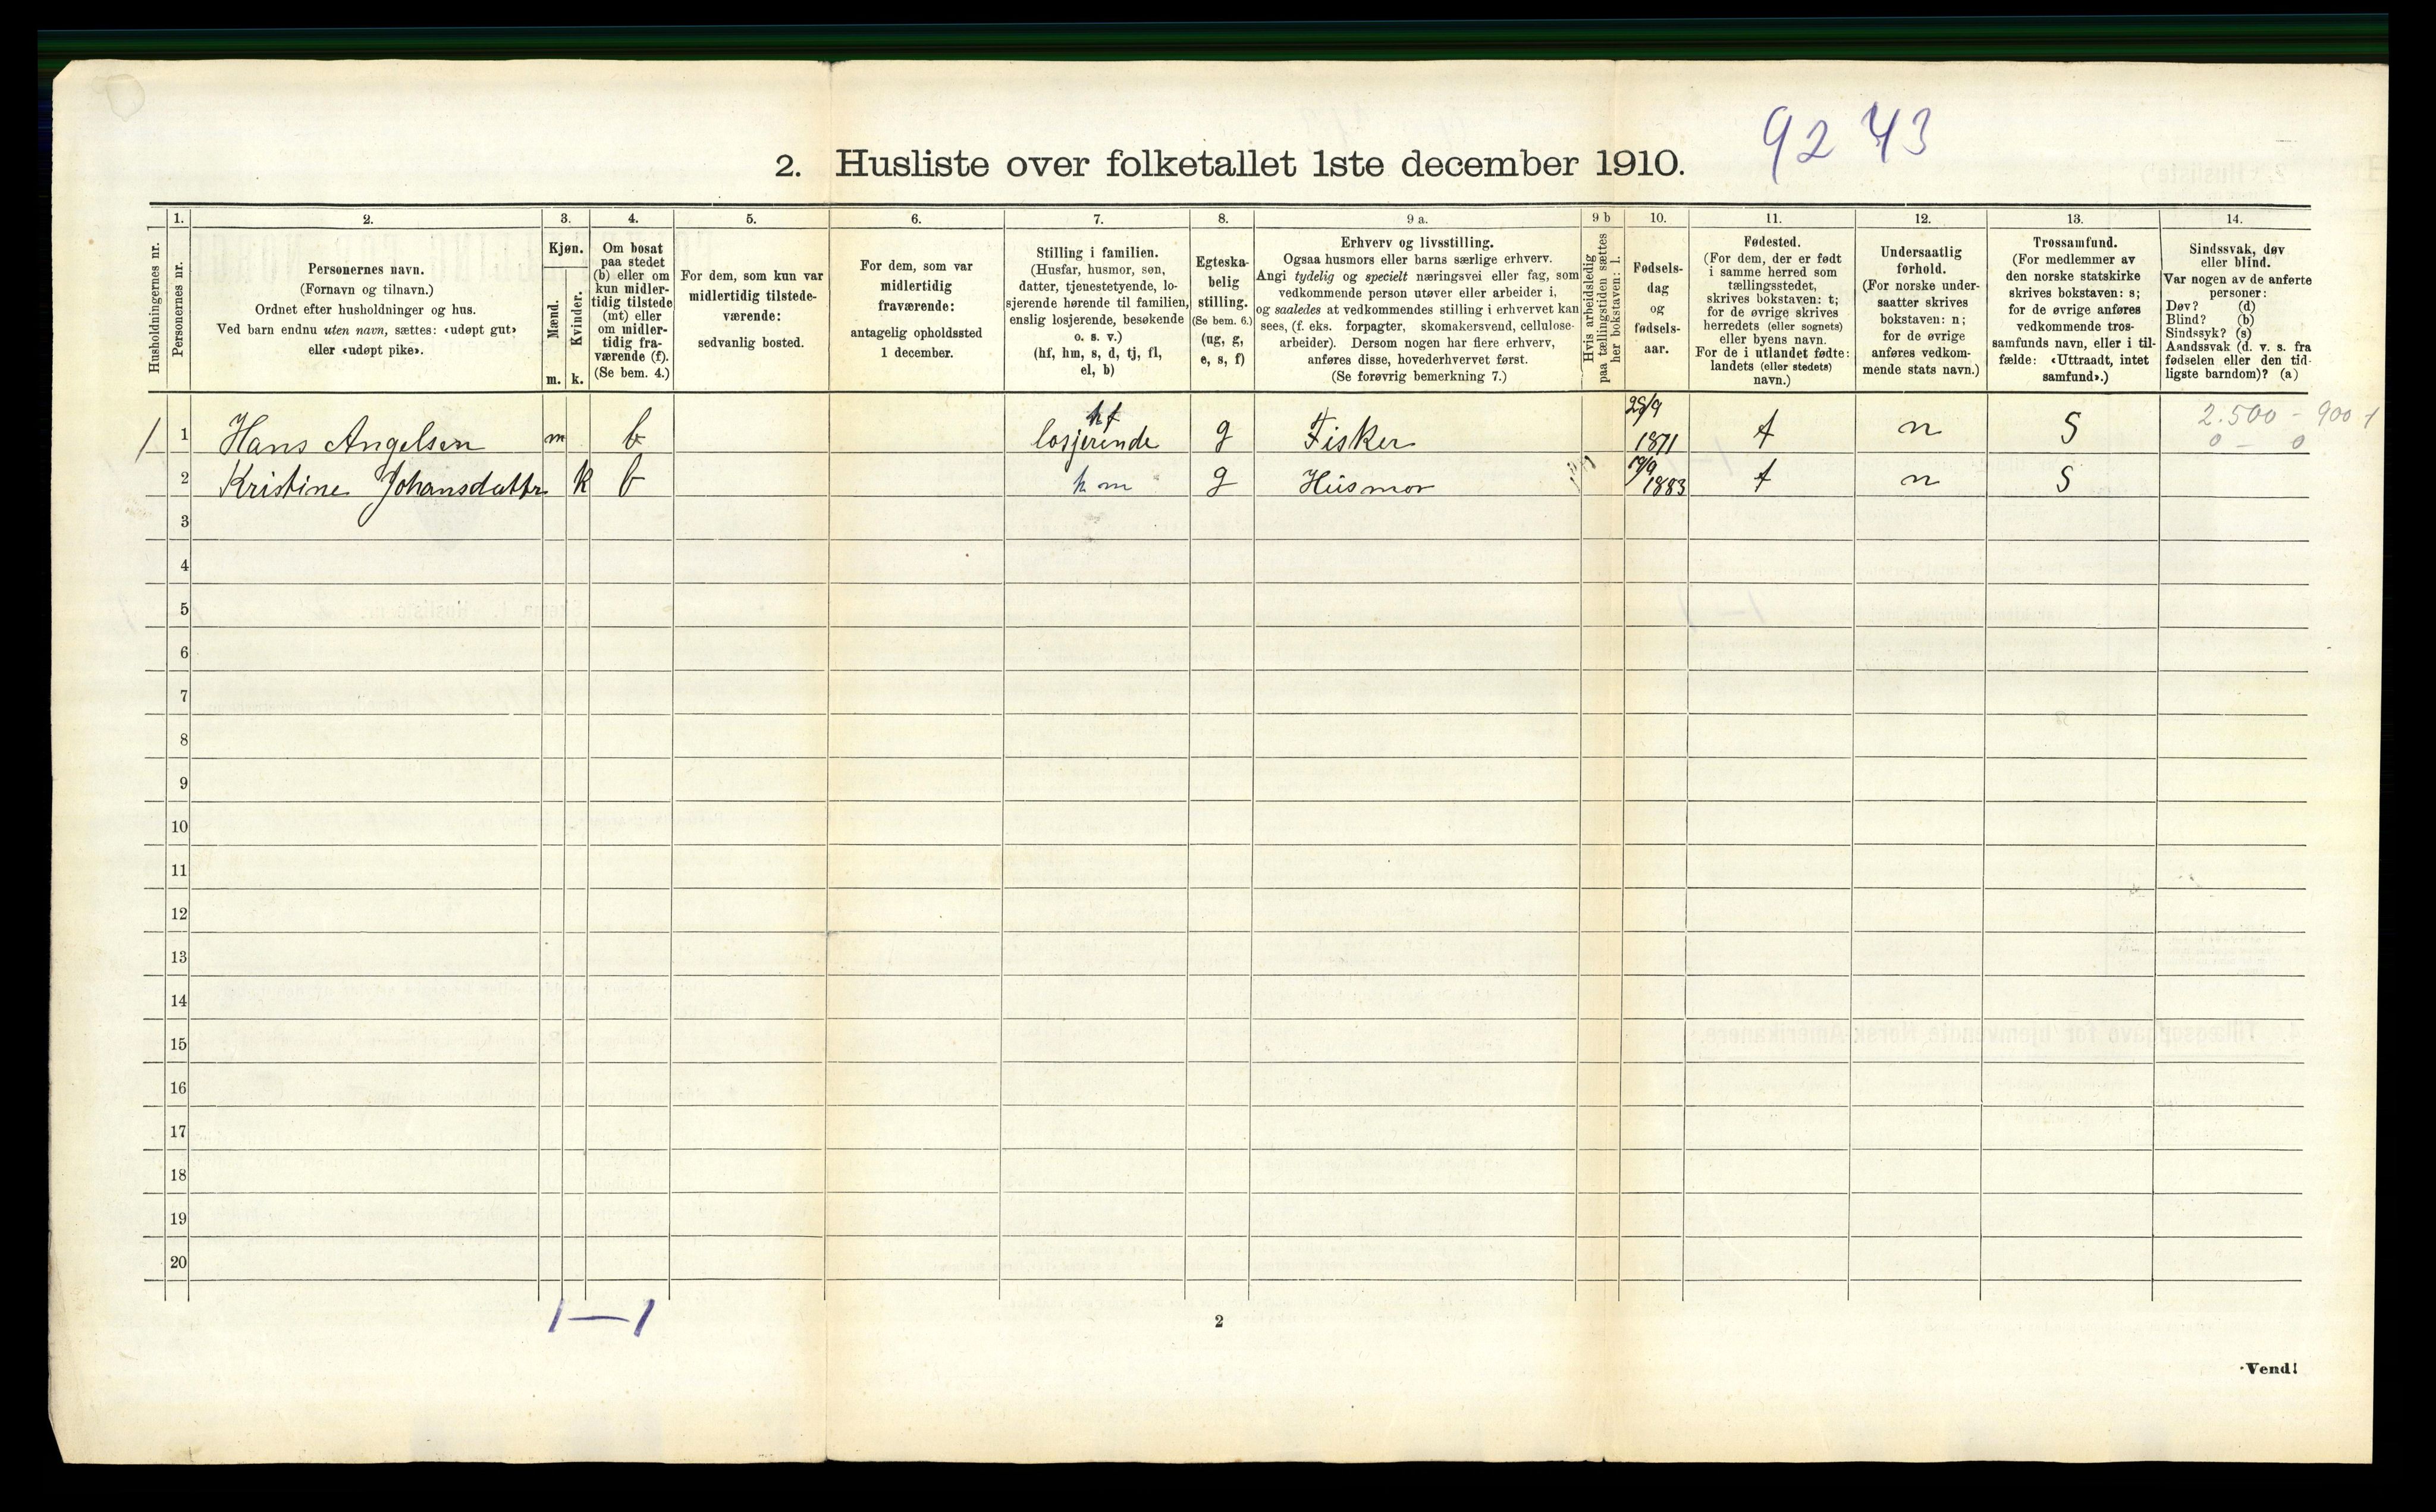 92 43
2. Husliste over folketallet 1ste december 1910.
Husholdningernes nr.
1.
Personernes nr.
2.
Personernes navn.
(Fornavn og tilnavn.)
Ordnet efter husholdninger og hus.
Ved barn endnu uten navn, sættes: «udøpt gut»
eller «udøpt pike».
3.
Kjøn.
Mænd.
Kvinder.
m. k.
4.
Om bosat
paa stedet
(b) eller om
kun midler-
tidig tilstede
(mt) eller
om midler-
tidig fra-
værende (f).
(Se bem. 4.)
5.
For dem, som kun var
midlertidig tilstede-
værende:
sedvanlig bosted.
6.
For dem, som var
midlertidig
fraværende:
antagelig opholdssted
1 december.
7.
Stilling i familien.
(Husfar, husmor, søn,
datter, tjenestetyende, lo-
sjerende hørende til familien,
enslig losjerende, besøkende
o. s. v.)
(hf, hm, s, d, tj, fl,
el, b)
8.
Egteska-
belig
stilling.
(Se bem. 6.)
(ug, g,
e, s, f)
9 a.
Erhverv og livsstilling.
Ogsaa husmors eller barns særlige erhverv.
Angi tydelig og specielt næringsvei eller fag, som
vedkommende person utøver eller arbeider i,
og saaledes at vedkommendes stilling i erhvervet kan
sees, (f. eks. forpagter, skomakersvend, cellulose-
arbeider). Dersom nogen har flere erhverv,
anføres disse, hovederhvervet først.
(Se forøvrig bemerkning 7.)
9 b
Hvis arbeidsledig
paa tællingstiden sættes
her bokstaven: l.
10.
Fødsels-
dag
og
fødsels-
aar.
11.
Fødested.
(For dem, der er født
i samme herred som
tællingsstedet,
skrives bokstaven: t;
for de øvrige skrives
herredets (eller sognets)
eller byens navn.
For de i utlandet fødte:
landets (eller stedets)
navn.)
12.
Undersaatlig
forhold.
(For norske under-
saatter skrives
bokstaven: n;
for de øvrige
anføres vedkom-
mende stats navn.)
13.
Trossamfund.
(For medlemmer av
den norske statskirke
skrives bokstaven: s;
for de øvrige anføres
vedkommende tros-
samfunds navn, eller i til-
fælde: «Uttraadt, intet
samfund».)
14.
Sindssvak, døv
eller blind.
Var nogen av de anførte
personer:
Døv? (d)
Blind? (b)
Sindssyk? (s)
Aandssvak (d. v. s. fra
fødselen eller den tid-
ligste barndom)? (a)
hf 2.500 - 900 1
1 1 Hans Angelsen m b losjerende g Fisker 1871 t n S 0 - 0
2 Kristine Johansdattr k b hm g Husmor 1883 t n S
3
4
5
6
7
8
9
10
11
12
13
14
15
16
17
18
19
20
1—1
2
Vend!